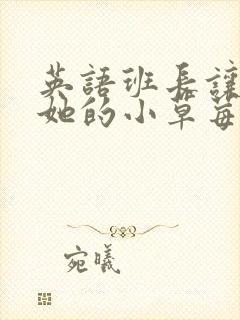 英語班長讓
她的小草每
宛曦